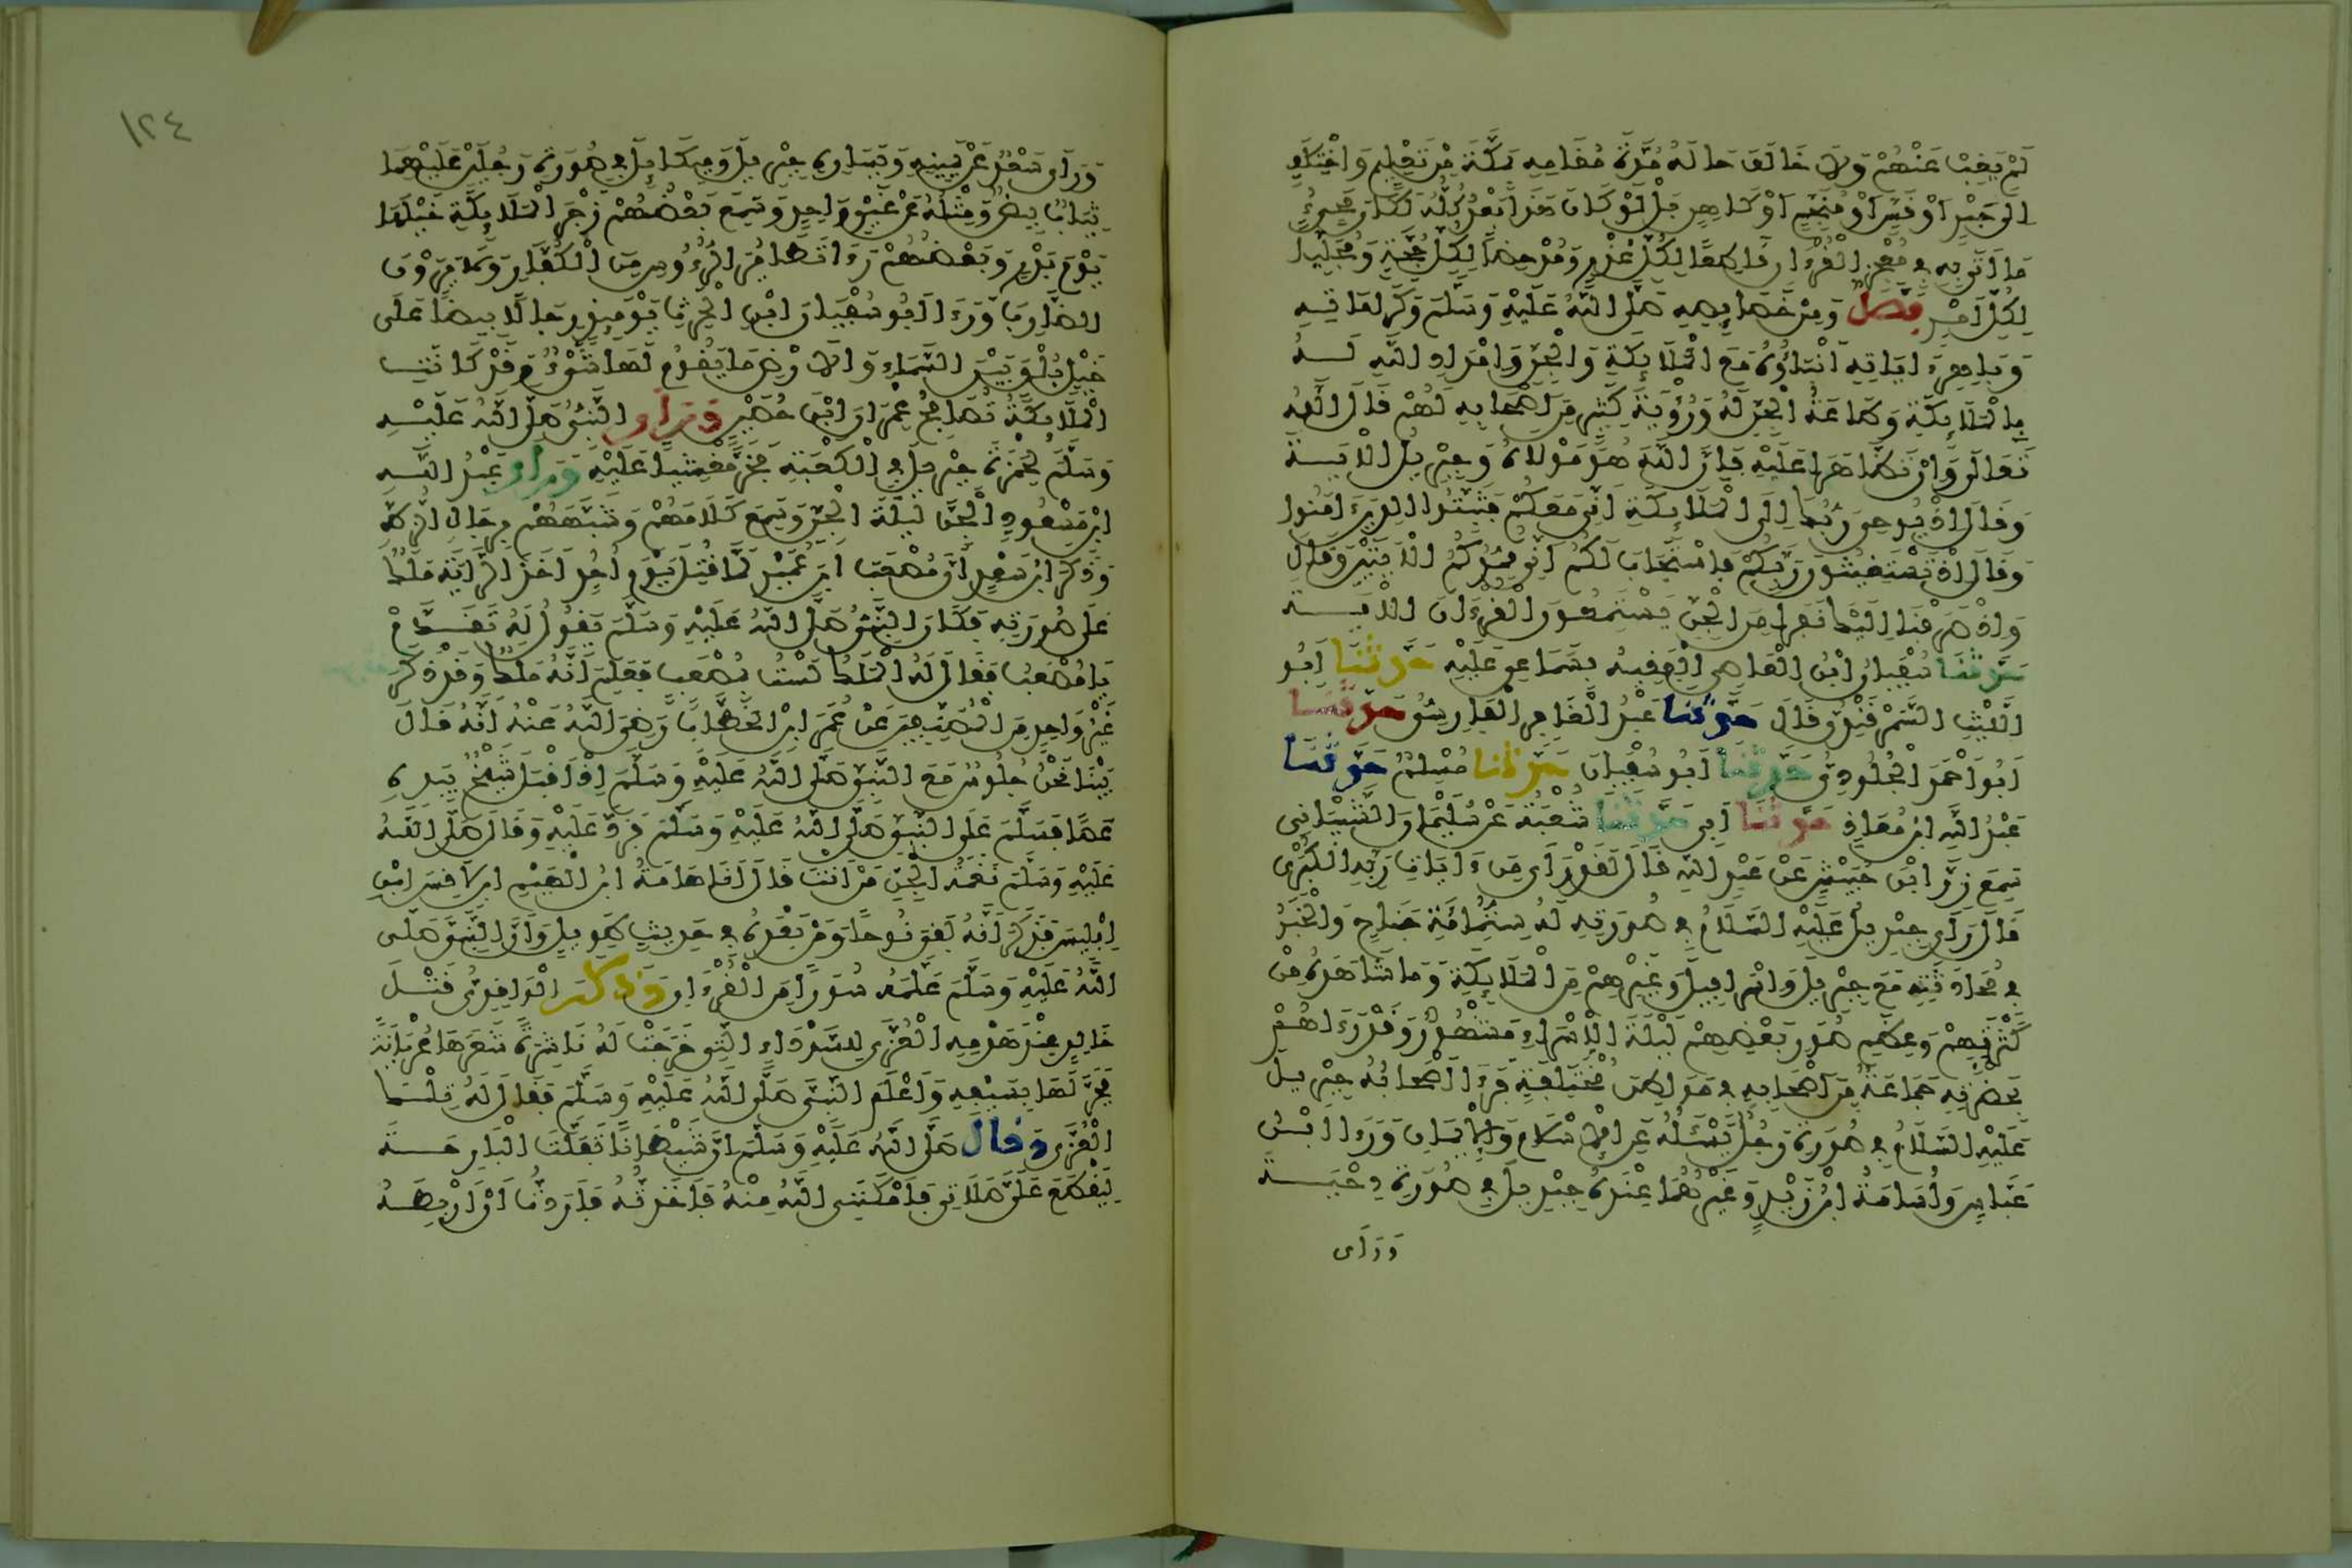 لَمْ يَغِبْ عَنْهُمْ وَلَا خَالَفَ حَالَهُ مُدَّةَ مُقَامِهِ بِمَكَّةَ مِنْ تَعْلِيمٍ وَاخْتِلَافٍ
إِلَى حَبْرٍ أَوْ قَسٍّ أَوْ مُنَجِّمٍ أَوْ كَاهِنٍ بَلْ لَوْ كَانَ هَذَا بَعْدُ كُلُّهُ لَكَانَ مَجِيءُ
مَا أَتَى بِهِ فِي مُعْجِزِ الْقُرْءَانِ قَاطِعًا لِكُلِّ عُذْرٍ وَمُدْحِضًا لِكُلِّ حُجَّةٍ وَمُجَلِّيًا
لِكُلِّ أَمْرٍ فصل وَمِنْ خَصَائِصِهِ صَلَّى اللَّهُ عَلَيْهِ وَسَلَّمَ وَكَرَامَاتِهِ
وَبَاهِرِ ءَايَاتِهِ أَنْبَاؤُهُ مَعَ الْمَلَائِكَةِ وَالْجِنِّ وَإِمْدَادِ اللَّهِ لَهُ
بِالْمَلَائِكَةِ وَطَاعَةُ الْجِنِّ لَهُ وَرُؤْيَةُ كَثِيرٍ مِنْ أَصْحَابِهِ لَهُمْ قَالَ اللَّهُ
تَعَالَى وَإِنْ تَظَّاهَرَا عَلَيْهِ فَإِنَّ اللَّهَ هُوَ مَوْلَاهُ وَجِبْرِيلُ الْآيَةَ
وَقَالَ إِذْ يُوحِي رَبُّكَ إِلَى الْمَلَائِكَةِ أَنِّي مَعَكُمْ فَثَبِّتُوا الَّذِينَ ءَامَنُوا
وَقَالَ إِذْ تَسْتَغِيثُونَ رَبَّكُمْ فَاسْتَجَابَ لَكُمْ أَنِّي مُمِدُّكُمْ الْآيَتَيْنِ وَقَالَ
وَإِذْ صَرَفْنَا إِلَيْكَ نَفَرًا مِنَ الْجِنِّ يَسْتَمِعُونَ الْقُرْءَانَ الْآيَةَ
حَدَّثَنَا سُفْيَانُ ابْنُ الْعَاصِي الْفَقِيهُ بِسَمَاعِي عَلَيْهِ حَدَّثَنَا أَبُو
اللَّيْثِ السَّمَرْقَنْدِيُّ قَالَ حَدَّثَنَا عَبْدُ الْغَافِرِ الْفَارِسِيُّ حَدَّثَنَا
أَبُو أَحْمَدَ الْجُلُودِيُّ حَدَّثَنَا أَبُو سُفْيَانَ حَدَّثَنَا مُسْلِمٌ حَدَّثَنَا
عَبْدُ اللَّهِ ابْنُ مُعَاذٍ حَدَّثَنَا أَبِي حَدَّثَنَا شُعْبَةُ عَنْ سُلَيْمَانَ الشَّيْبَانِي
سَمِعَ زِرَّ ابْنَ حُبَيْشٍ عَنْ عَبْدِ اللَّهِ قَالَ لَقَدْ رَأَى مِنْ ءَايَاتِ رَبِّهِ الْكُبْرَى
قَالَ رَأَى جِبْرِيلَ عَلَيْهِ السَّلَامُ فِي صُورَتِهِ لَهُ سِتُّمِائَةِ جَنَاحٍ وَالْخَبَرُ
فِي مُحَادَثَتِهِ مَعَ جِبْرِيلَ وَإِسْرَافِيلَ وَغَيْرِهِمْ مِنَ الْمَلَائِكَةِ وَمَا شَاهَدَهُ مِنْ
كَثْرَتِهِمْ وَعِظَمِ صُوَرِ بَعْضِهِمْ لَيْلَةَ الْإِسْرَاءِ مَشْهُورٌ وَقَدْ رَءَاهُمْ
بِحَضْرَتِهِ جَمَاعَةٌ مِنْ أَصْحَابِهِ فِي مَوَاطِنَ مُخْتَلِفَةٍ فَرَءَا أَصْحَابُهُ جِبْرِيلَ
عَلَيْهِ السَّلَامُ فِي صُورَةِ رَجُلٍ يَسْئَلُهُ عَنِ الْإِسْلَامِ وَالْإِيمَانِ وَرَءَا ابْنُ
عَبَّاسٍ وَأُسَامَةُ ابْنُ زَيْدٍ وَغَيْرُهُمَا عِنْدَهُ جِبْرِيلَ فِي صُورَةِ دِحْيَةَ
وَرَأَى
١٢٤
وَرَأَى سَعْدٌ عَنْ يَمِينِهِ وَيَسَارِهِ جِبْرِيلَ وَمِيكَائِيلَ فِي صُورَةِ رَجُلَيْنِ عَلَيْهِمَا
ثِيَابٌ بِيضٌ وَمِثْلُهُ عَنْ غَيْرِ وَاحِدٍ وَسَمِعَ بَعْضُهُمْ زَجْرَ الْمَلَائِكَةِ خَيْلَهَا
يَوْمَ بَدْرٍ وَبَعْضُهُمْ رَءَا تَطَايُرَ الرُّءُوسِ مِنَ الْكُفَّارِ وَلَا يَرَوْنَ
الضَّارِبَ وَرَءَا أَبُو سُفْيَانَ ابْنُ الْحَرِثِ يَوْمَئِذٍ رِجَالًا بِيضًا عَلَى
خَيْلٍ بُلْقٍ بَيْنَ السَّمَاءِ وَالْأَرْضِ مَا يَقُومُ لَهَا شَيْءٌ وَقَدْ كَانَتِ
الْمَلَائِكَةُ تُصَافِحُ عِمْرَانَ ابْنَ حُصَيْنٍ وَرَأَى النَّبِيُّ صَلَّى اللَّهُ عَلَيْهِ
وَسَلَّمَ لِحَمْزَةَ جِبْرِيلَ فِي الْكَعْبَةِ فَخَرَّ مَغْشِيًّا عَلَيْهِ وَرَأَى عَبْدُ اللَّهِ
ابْنُ مَسْعُودٍ الْجِنَّ لَيْلَةَ الْجِنِّ وَسَمِعَ كَلَامَهُمْ وَشَبَّهَهُمْ بِرِجَالِ الزُّطِّ
وَذَكَرَ ابْنُ سَعْدٍ أَنَّ مُصْعَبَ ابْنَ عُمَيْرٍ لَمَّا قُتِلَ يَوْمَ أُحُدٍ أَخَذَ الرَّايَةَ مَلَكٌ
عَلَى صُورَتِهِ فَكَانَ النَّبِيُّ صَلَّى اللَّهُ عَلَيْهِ وَسَلَّمَ يَقُولُ لَهُ تَقَدَّمْ
يَا مُصْعَبُ فَقَالَ لَهُ الْمَلَكُ لَسْتُ بِمُصْعَبٍ فَعَلِمَ أَنَّهُ مَلَكٌ وَقَدْ ذَكَرَ
غَيْرُ وَاحِدٍ مِنَ الْمُصَنِّفِينَ عَنْ عُمَرَ ابْنِ الْخَطَّابِ رَضِيَ اللَّهُ عَنْهُ أَنَّهُ قَالَ
بَيْنَا نَحْنُ جُلُوسٌ مَعَ النَّبِيِّ صَلَّى اللَّهُ عَلَيْهِ وَسَلَّمَ إِذْ أَقْبَلَ شَيْخٌ بِيَدِهِ
عَصًا فَسَلَّمَ عَلَى النَّبِيِّ صَلَّى اللَّهُ عَلَيْهِ وَسَلَّمَ فَرَدَّ عَلَيْهِ وَقَالَ صَلَّى اللَّهُ
عَلَيْهِ وَسَلَّمَ نَغَمَةُ الْجِنِّ مَنْ أَنْتَ قَالَ أَنَا هَامَةُ ابْنُ الْهَيْمِ ابْنِ لَاقِسَ ابْنِ
إِبْلِيسَ فَذَكَرَ أَنَّهُ لَقِيَ نُوحًا وَمَنْ بَعْدَهُ فِي حَدِيثٍ طَوِيلٍ وَأَنَّ النَّبِيَّ صَلَّى
اللَّهُ عَلَيْهِ وَسَلَّمَ عَلَّمَهُ سُوَرًا مِنَ الْقُرْءَانِ وَذَكَرَ الْوَاقِدِيُّ قَتْلَ
خَالِدٍ عِنْدَ هَدْمِهِ الْعُزَّى لِلسَّوْدَاءِ الَّتِي خَرَجَتْ لَهُ نَاشِرَةً شَعَرَهَا عُرْيَانَةً
فَجَزَّلَهَا بِسَيْفِهِ وَأَعْلَمَ النَّبِيَّ صَلَّى اللَّهُ عَلَيْهِ وَسَلَّمَ فَقَالَ لَهُ تِلْكَ
الْعُزَّى وَقَالَ صَلَّى اللَّهُ عَلَيْهِ وَسَلَّمَ إِنَّ شَيْطَانًا تَفَلَّتَ الْبَارِحَةَ
لِيَقْطَعَ عَلَيَّ صَلَاتِي فَأَمْكَنَنِي اللَّهُ مِنْهُ فَأَخَذْتُهُ فَأَرَدْتُ أَنْ أَرْبِطَهُ